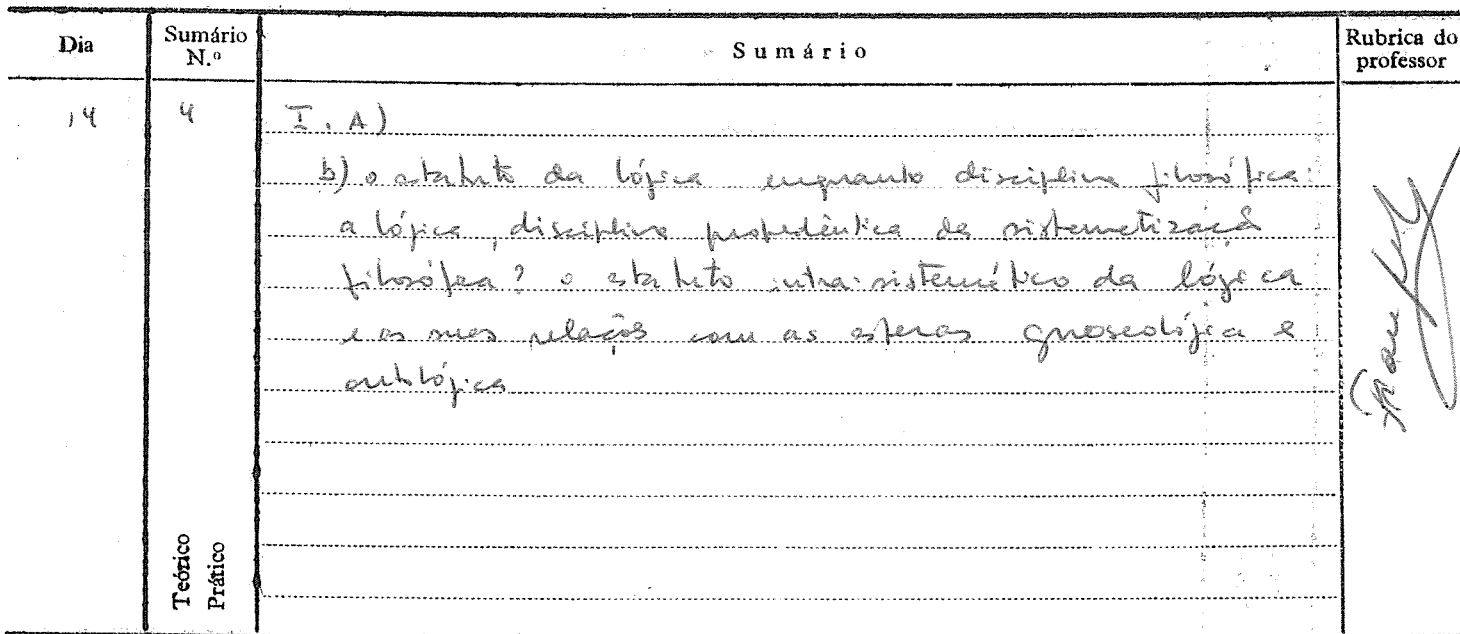 Dia
Sumário N.º
Sumário
Rubrica do professor
14
4
I. A)
b) o estatuto da lógica enquanto disciplina filosófica:
a lógica, disciplina propedêutica da sistematização
filosófica? o estatuto intra-sistemático da lógica
e as suas relações com as esferas gnoseológica e
ontológica
Teórico
Prático